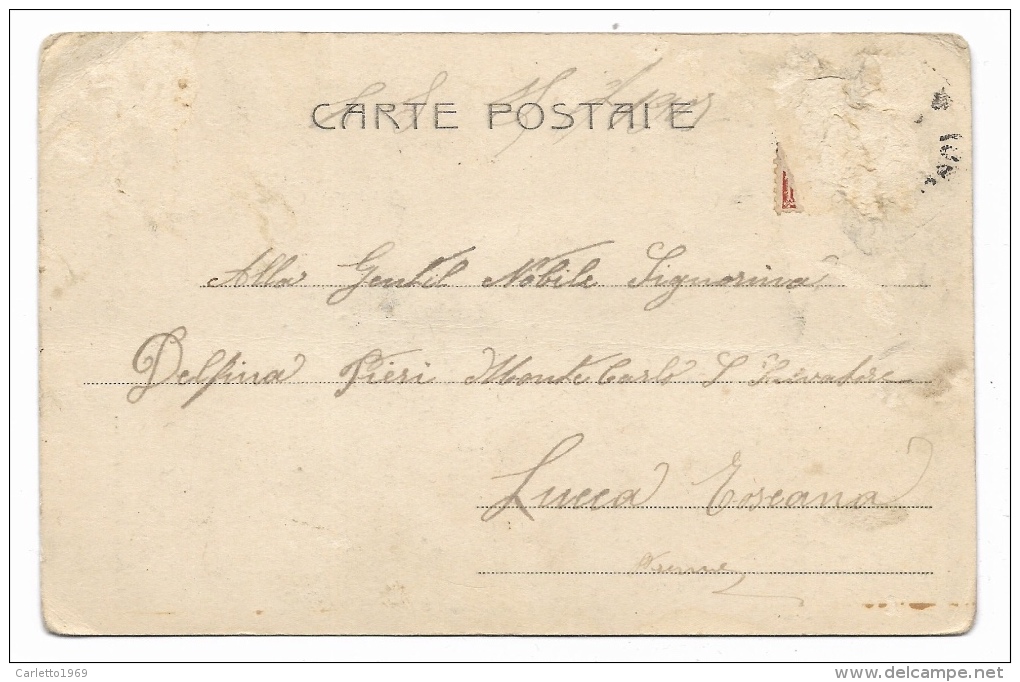 CARTE POSTALE
Alla Gentil Nobile Signorina
Delfina Pieri Monte Carlo S Salvatore
Lucca Toscana
Carletto1969
www.delcampe.net